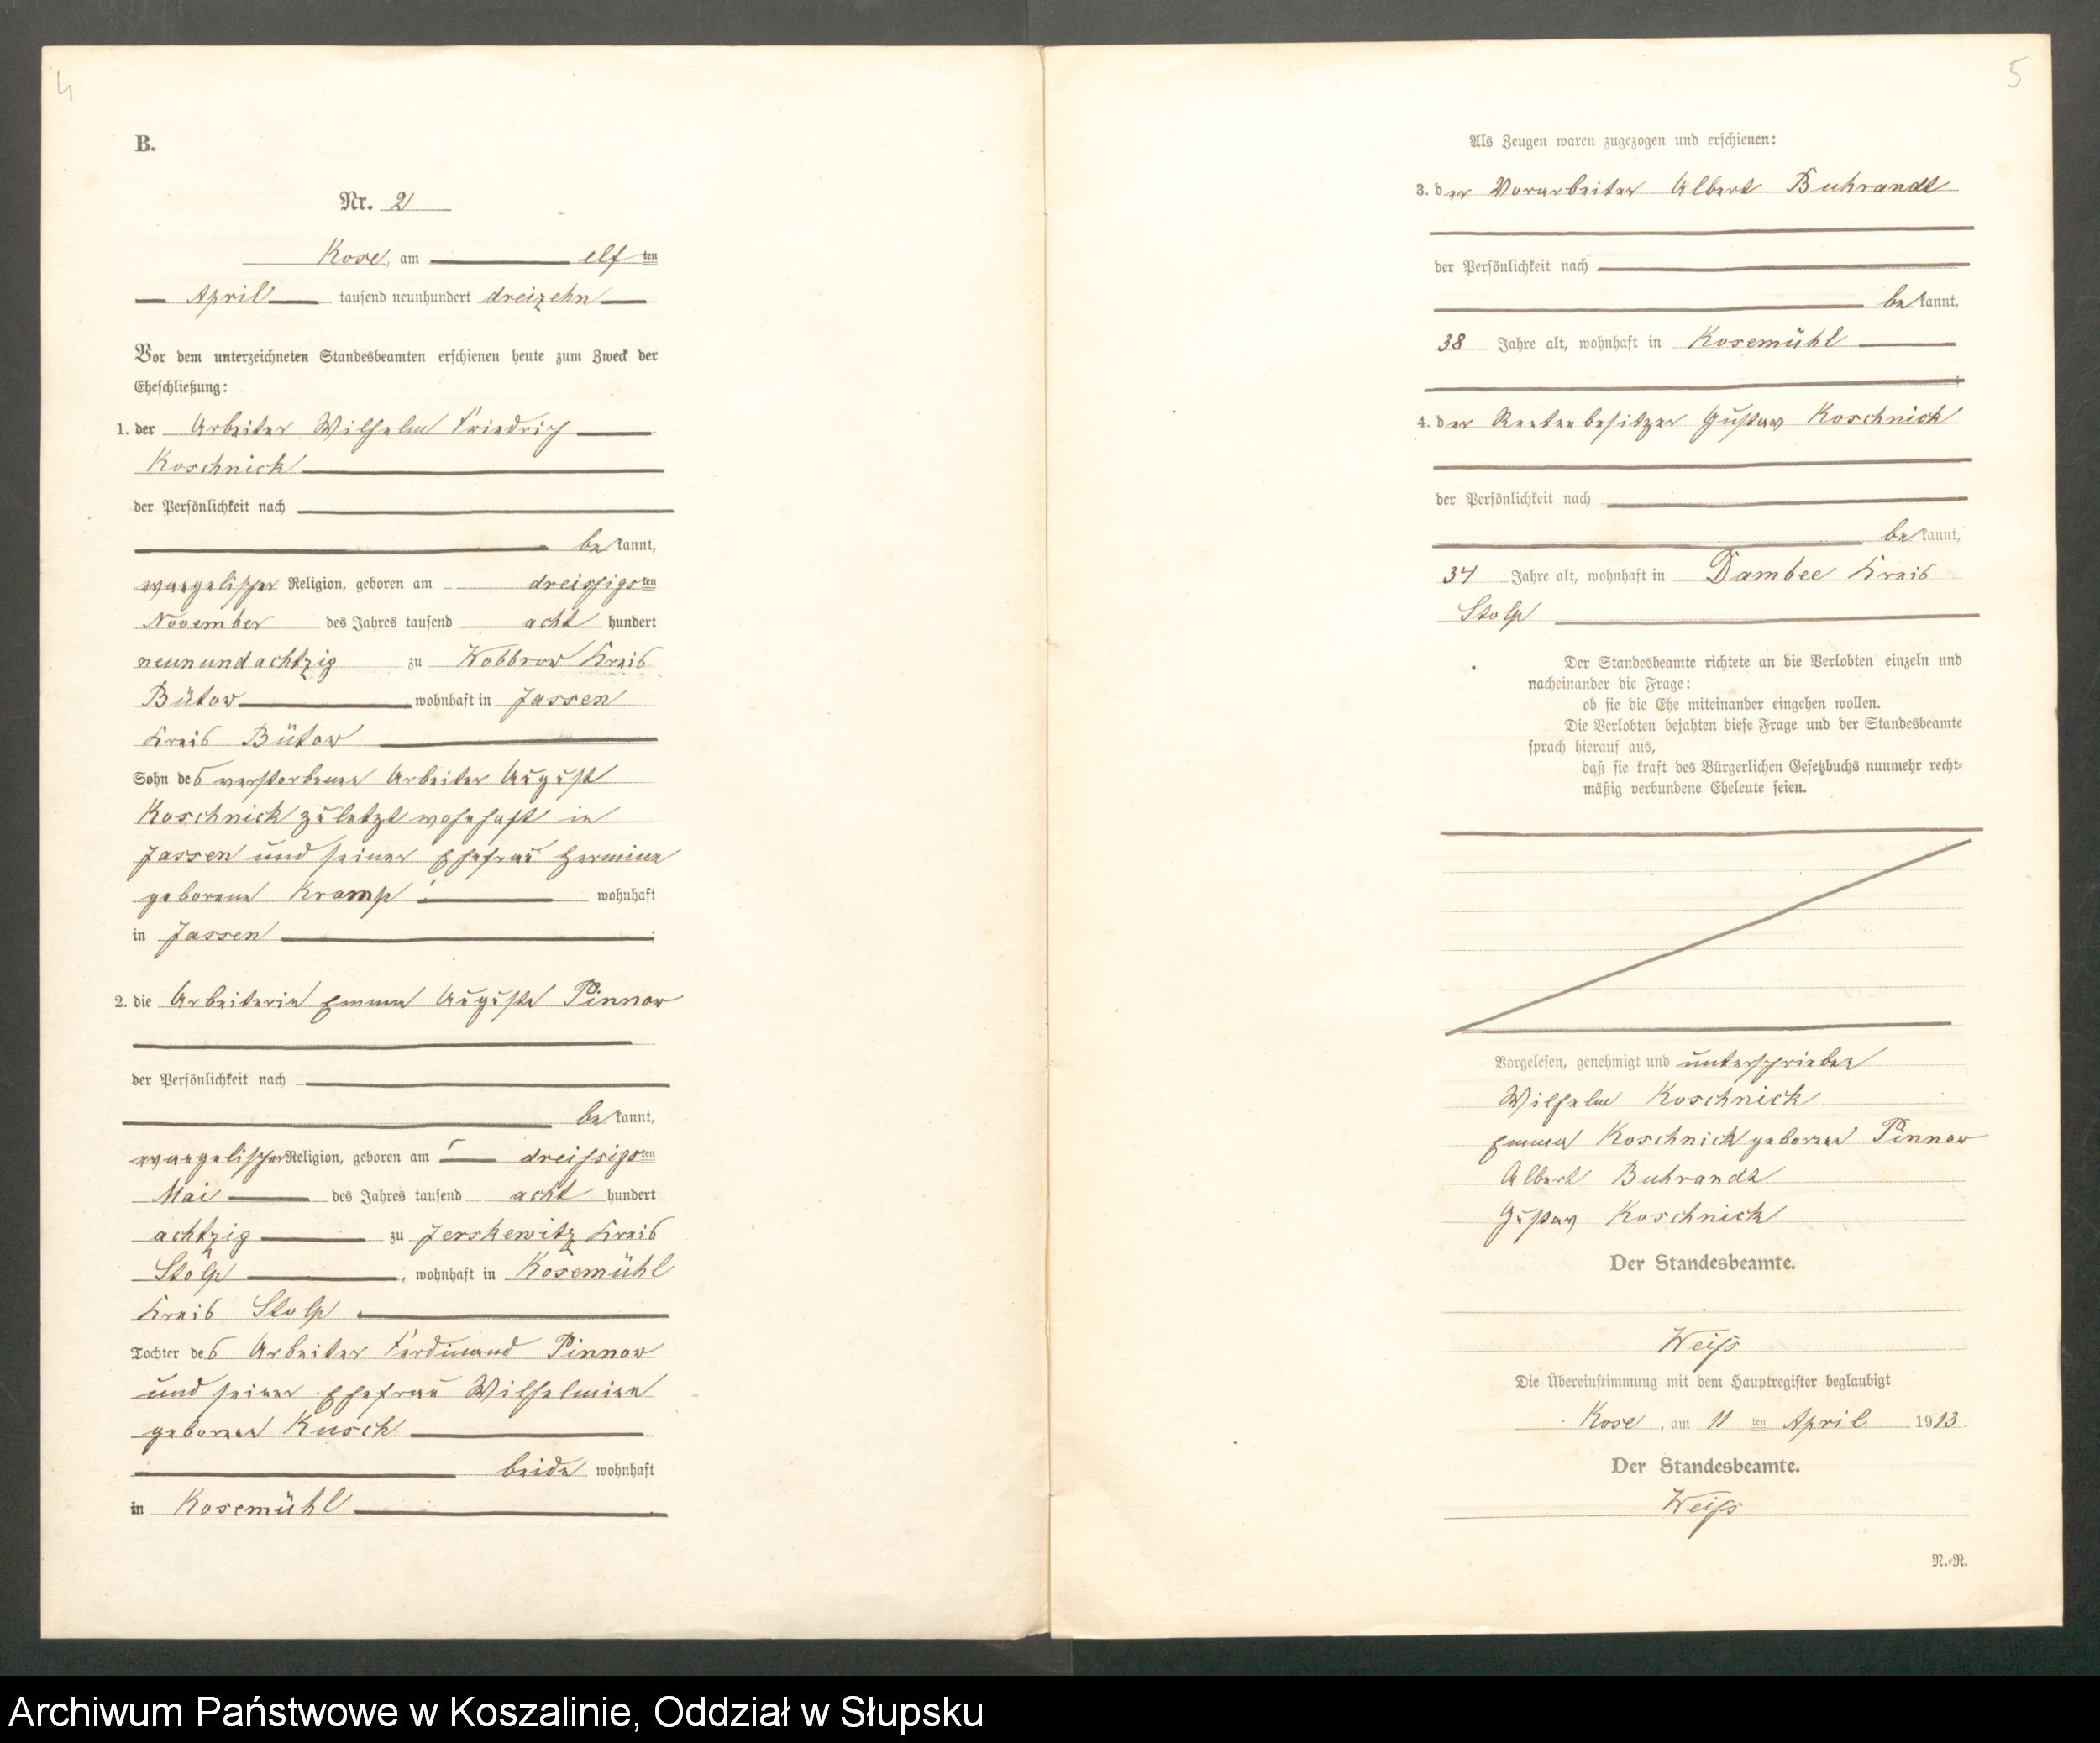 4
B.
Nr. 2
Kose, am elften
April tausend neunhundert dreizehn
Vor dem unterzeichneten Standesbeamten erschienen heute zum Zweck der
Eheschließung:
1. der Arbeiter Wilhelm Friedrich
Koschnick
der Persönlichkeit nach
bekannt,
evangelischer Religion, geboren am dreissigsten
November des Jahres tausend acht hundert
neunundachtzig zu Wobbrow Kreis
Bütow wohnhaft in Jassen
Kreis Bütow
Sohn des verstorbenen Arbeiter August
Koschnick zuletzt wohnhaft in
Jassen und seiner Ehefrau Hermine
geborene Kramp wohnhaft
in Jassen
2. die Arbeiterin Emma Auguste Pinnow
der Persönlichkeit nach
bekannt,
evangelischer Religion, geboren am dreissigsten
Mai des Jahres tausend acht hundert
achtzig zu Jerskewitz Kreis
Stolp, wohnhaft in Kosemühl
Kreis Stolp
Tochter des Arbeiter Ferdinand Pinnow
und seiner Ehefrau Wilhelmine
geborene Kusch
beide wohnhaft
in Kosemühl
5
Als Zeugen waren zugezogen und erschienen:
3. der Vorarbeiter Albert Buhrandt
der Persönlichkeit nach
bekannt,
38 Jahre alt, wohnhaft in Kosemühl
4. der Rentenbesitzer Gustav Koschnick
der Persönlichkeit nach
bekannt,
34 Jahre alt, wohnhaft in Dambee Kreis
Stolp
Der Standesbeamte richtete an die Verlobten einzeln und
nacheinander die Frage:
ob sie die Ehe miteinander eingehen wollen.
Die Verlobten bejahten diese Frage und der Standesbeamte
sprach hierauf aus,
daß sie kraft des Bürgerlichen Gesetzbuchs nunmehr recht-
mäßig verbundene Eheleute seien.
Vorgelesen, genehmigt und unterschrieben
Wilhelm Koschnick
Emma Koschnick geborene Pinnow
Albert Buhrandt
Gustav Koschnick
Der Standesbeamte.
Weiß
Die Übereinstimmung mit dem Hauptregister beglaubigt
Kose, am 11ten April 1913.
Der Standesbeamte.
Weiß
N.-R.
Archiwum Państwowe w Koszalinie, Oddział w Słupsku